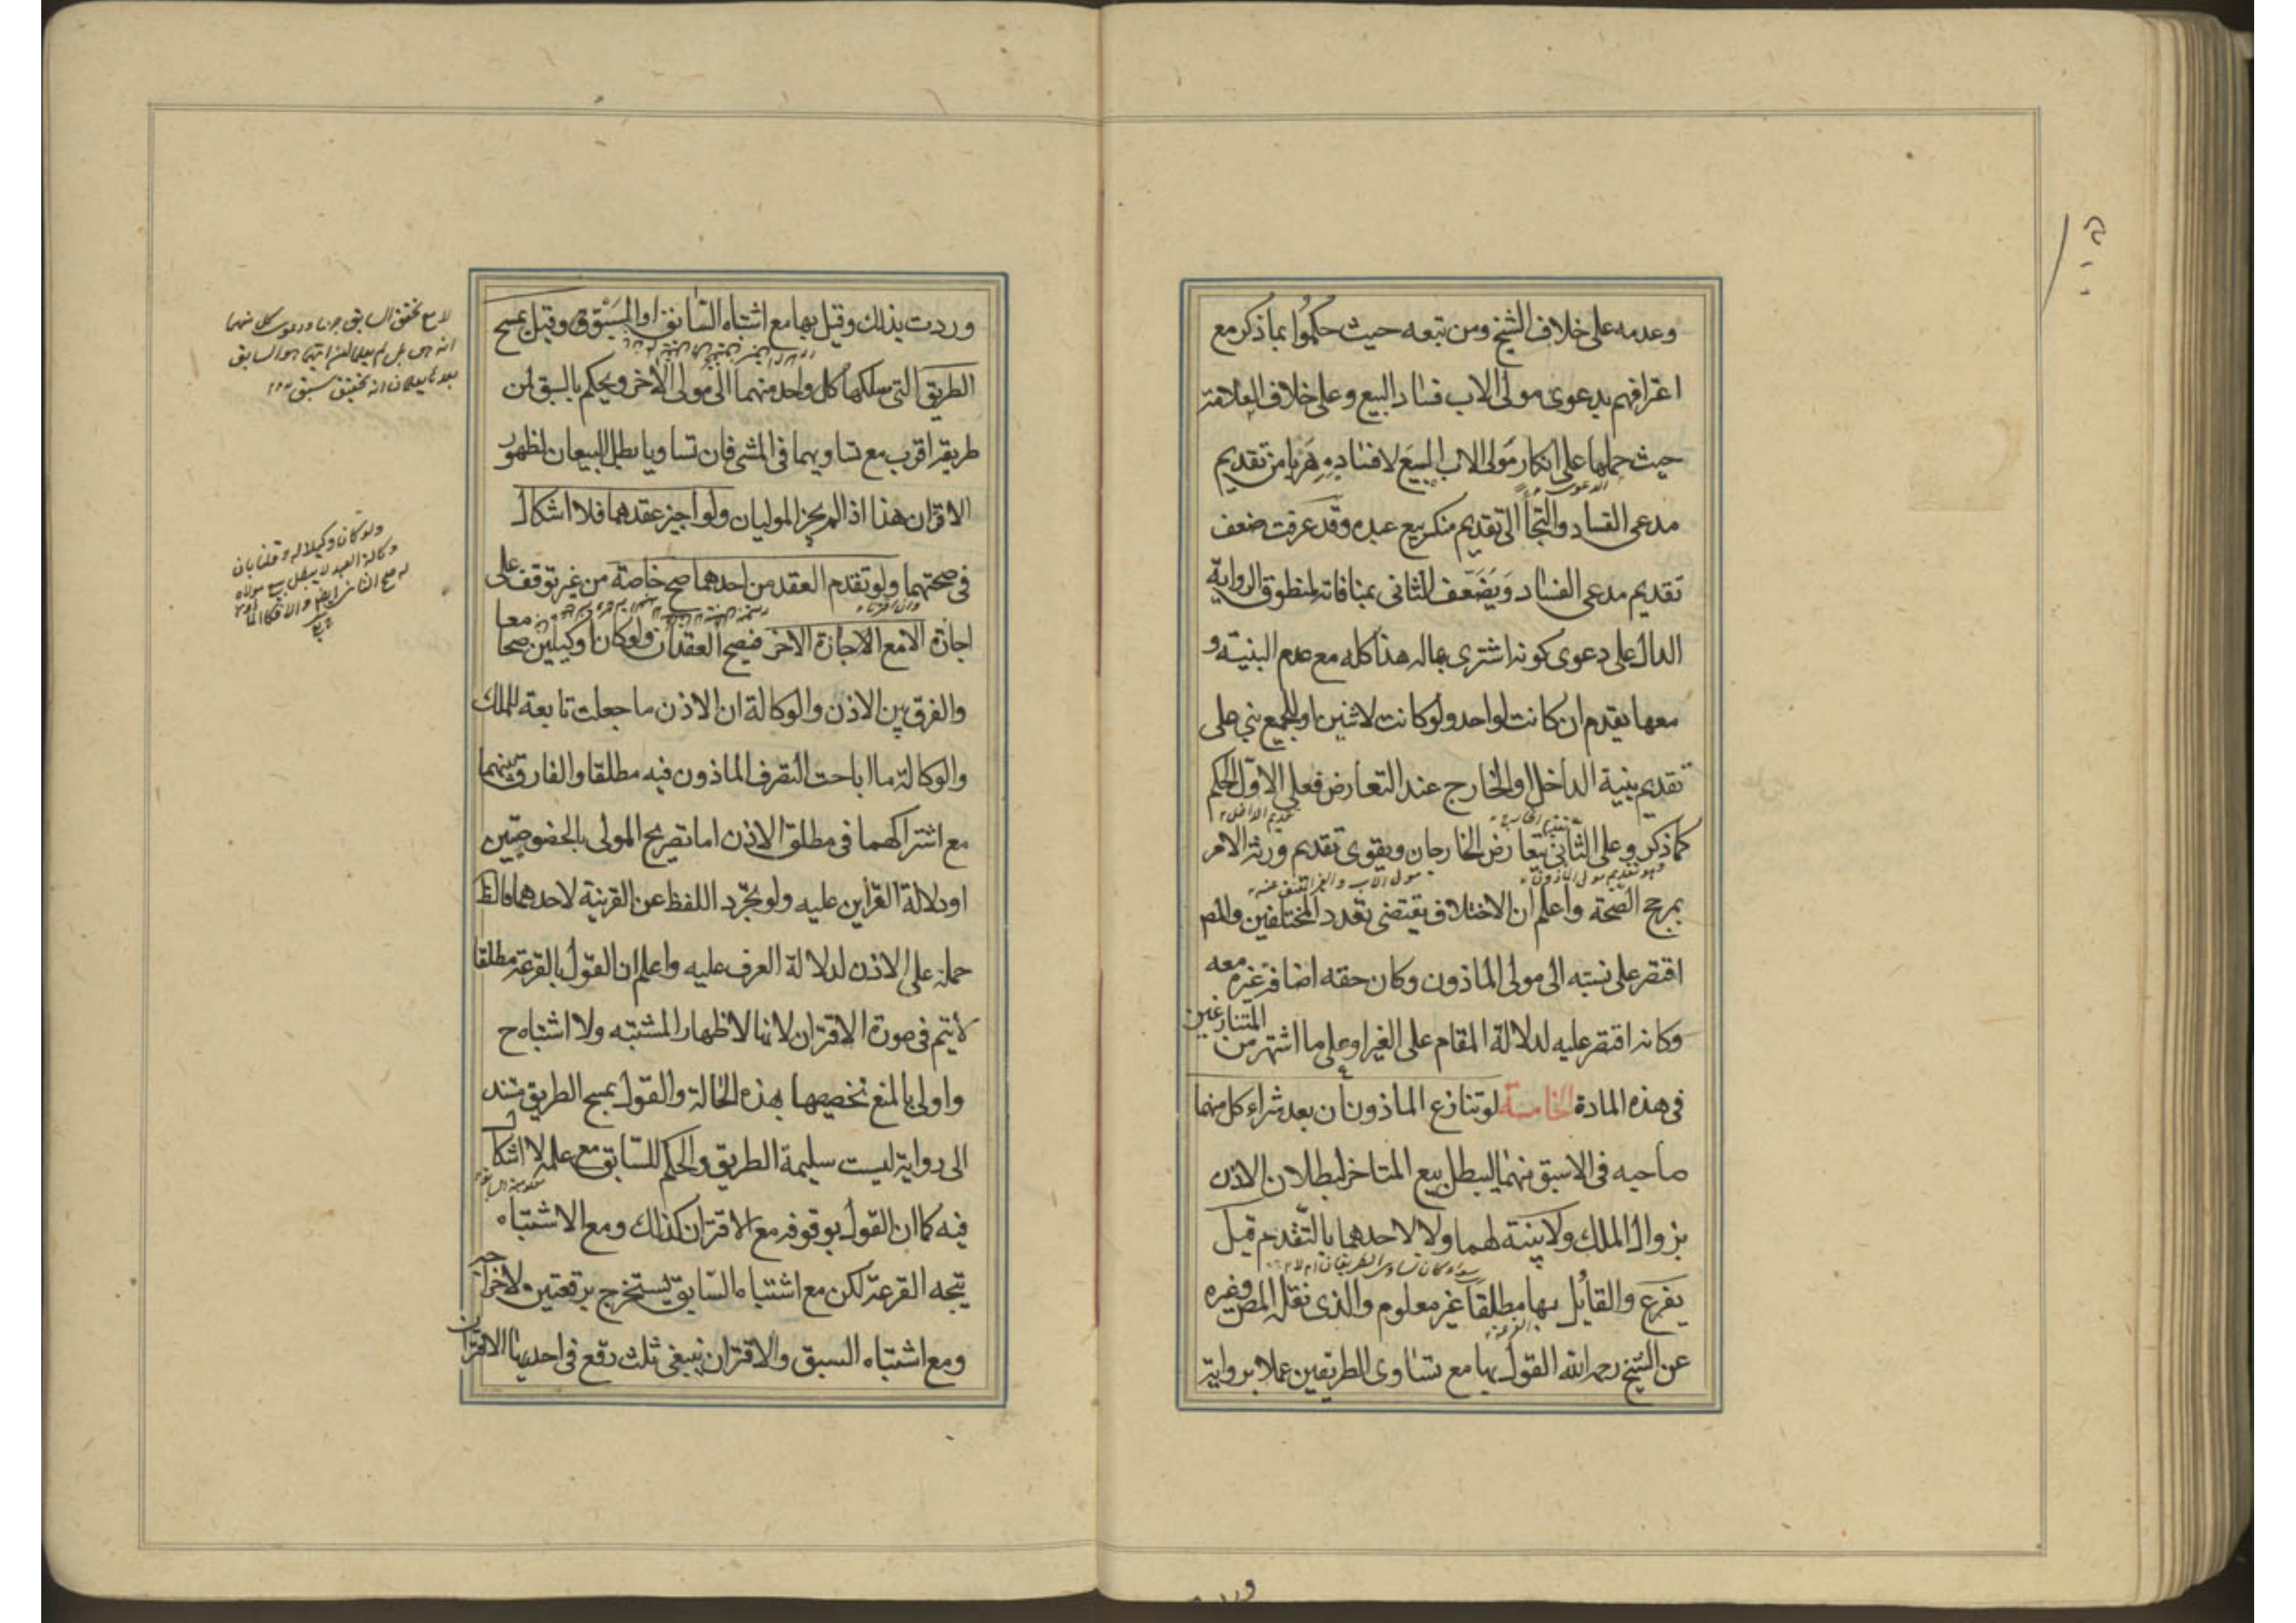 وعدمه على خلاف الشيخ ومن تبعه حيث حكموا بما ذكر مع
اعترافهم بدعوى مولى الاب فساد البيع وعلى خلاف العلامة
حيث حملها على انكار مولى الاب البيع لا فساده هربا من تقديم
مدعى الفساد والتجأ الى تقديم منكر بيع عبده وقد عرفت ضعف
تقديم مدعى الفساد ويضعف الثانى بمنافاته لمنطوق الرواية
الدال على دعوى كونه اشترى بماله هذا كله مع عدم البينة و
معها يقدم ان كانت لواحد ولو كانت لاثنين او للجميع بنى على
تقديم بينة الداخل او الخارج عند التعارض فعلى الاول الحكم
تقديم الداخل
كما ذكر وعلى الثانى يتعارض الخارجان ويقوى تقديم ورثة الامر
مولى الاب
بمرجح الصحة واعلم ان الاختلاف يقتضى تعدد المختلفين والمص
اقتصر على نسبته الى مولى الماذون وكان حقه اضافة غيره معه
وكانه اقتصر عليه لدلالة المقام على الغير او على ما اشتهر من المتنازعين
فى هذه المادة الخامسة لو تنازع الماذونان بعد شراء كل منهما
صاحبه فى الاسبق منهما ليبطل بيع المتاخر لبطلان الاذن
بزوال الملك ولا بينة لهما ولا لاحدهما بالتقدم قيل
يقرع والقايل بها مطلقا غير معلوم والذى نقله المص وغيره
القرعة
عن الشيخ رحمه الله القول بها مع تساوى الطريقين عملا برواية
وردت بذلك وقيل بها مع اشتباه السابق او المسبوق وقيل يمسح
الطريق التى سلكها كل واحد منهما الى مولى الاخر ويحكم بالسبق لمن
طريقه اقرب مع تساويهما فى المشى فان تساويا بطل البيعان لظهور
الاقتران هذا اذا لم يجز الموليان ولو اجيز عقدهما فلا اشكال
فى صحتهما ولو تقدم العقد من احدهما صح خاصة من غير توقف على
اجازة الا مع الاجازة الاخر فيصح العقدان ولو كانا وكيلين صحا معا
والفرق بين الاذن والوكالة ان الاذن ما جعلت تابعة للملك
والوكالة ما اباحت التصرف الماذون فيه مطلقا والفارق بينهما
مع اشتراكهما فى مطلق الاذن اما تصريح المولى بالخصوصيتين
او دلالة القراين عليه ولو تجرد اللفظ عن القرينة لاحدهما فالظ
حمله على الاذن لدلالة العرف عليه واعلم ان القول بالقرعة مطلقا
لا يتم فى صورة الاقتران لانها لاظهار المشتبه ولا اشتباه ح
واولى بالمنع تخصيصها بهذه الحالة والقول بمسح الطريق مستند
الى رواية ليست سليمة الطريق والحكم للسابق مع علمه لا اشكال
فيه كما ان القول بوقوفه مع الاقتران كذلك ومع الاشتباه
يتجه القرعة لكن مع اشتباه السابق يستخرج برقعتين لاخراجه
ومع اشتباه السبق والاقتران ينبغى ثلث رقع فى احديها الاقتران